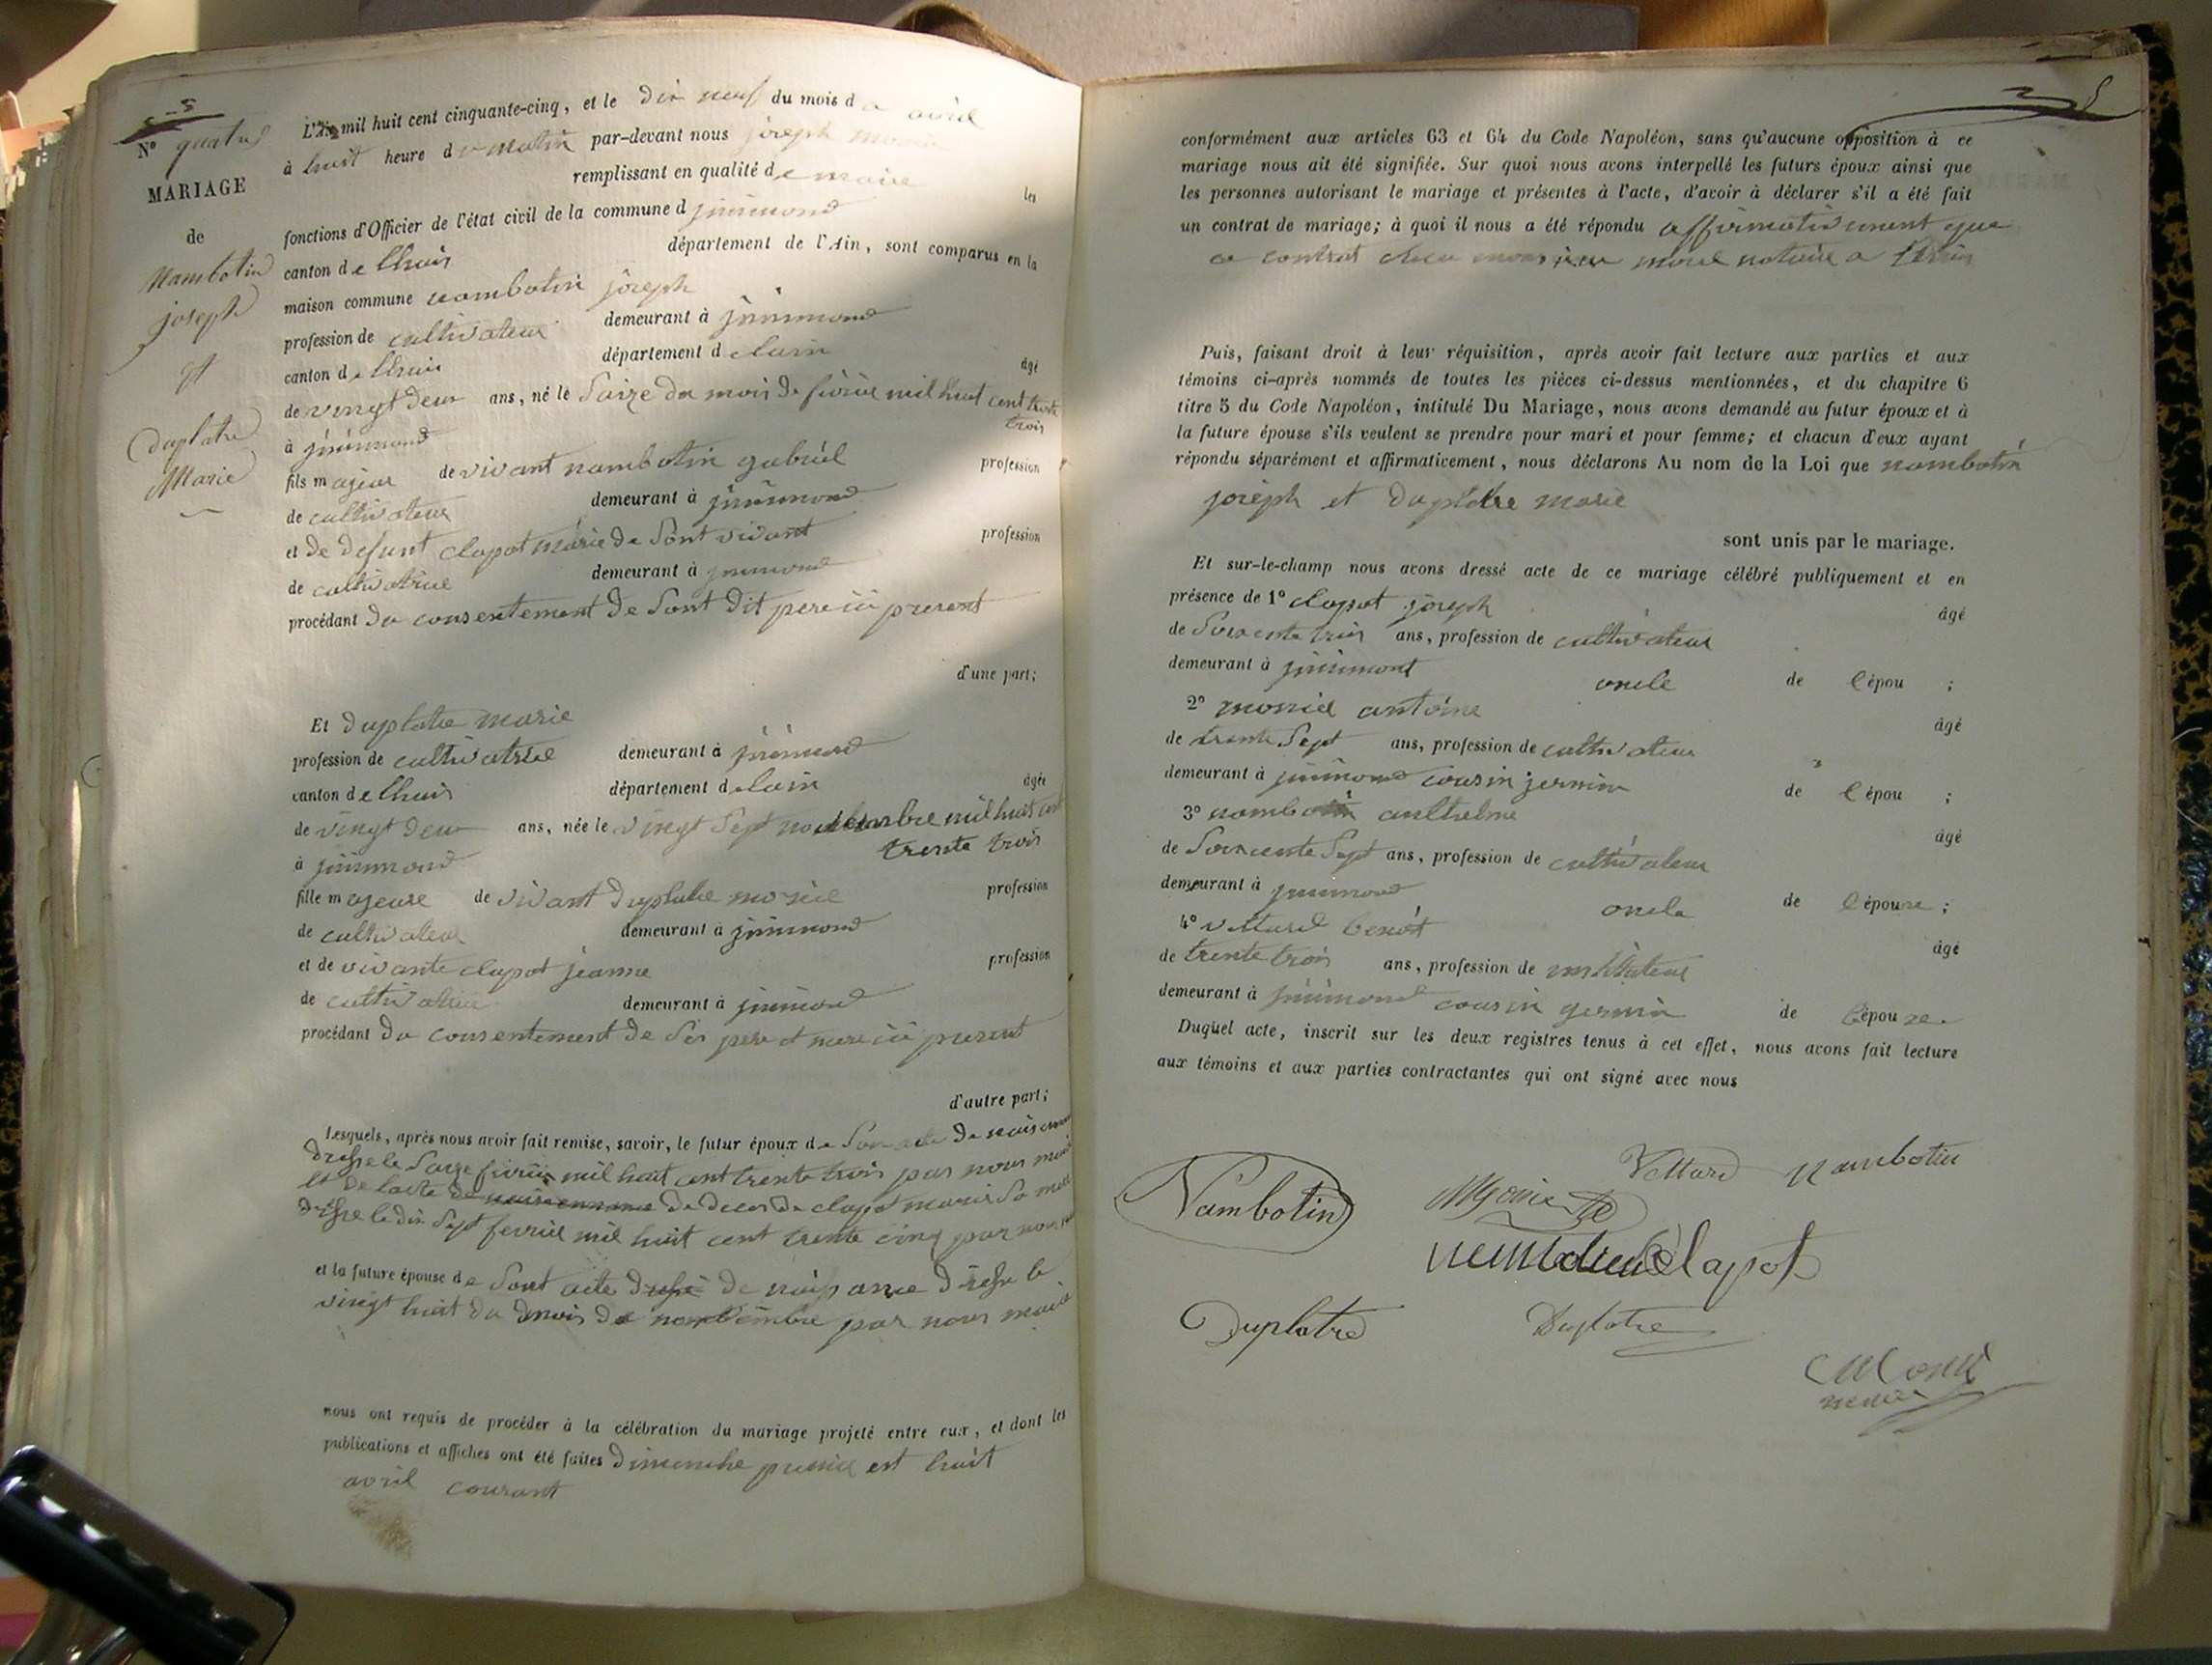 5
N° quatre
MARIAGE
de
Nambotin
joseph
et
Duplatre
Marie
L'An mil huit cent cinquante-cinq, et le dix neuf du mois d avril
à huit heure du matin par-devant nous joseph
remplissant en qualité de maire les
fonctions d'Officier de l'état civil de la commune d jnnimond
canton de lhuis département de l'Ain, sont comparus en la
maison commune nambotin joseph
profession de cultivateur demeurant à jnnimond
canton de lhuis département de lain âgé
de vingt deux ans, né le Saize du mois de fevrier mil huit cent trente
trois
à jnnimond
fils majeur de vivant nambotin gabriel profession
de cultivateur demeurant à jnnimond
et de defunt clapot marie de Sont vivant profession
de cultivatrice demeurant à jnnimond
procédant du consentement de Sont dit pere ici present
d'une part;
Et duplatre marie
profession de cultivatrice demeurant à jnnimond
canton de lhuis département de lain âgée
de vingt deux ans, née le vingt Sept novembre mil huit cent
trente trois
à jnnimond
fille majeure de vivant duplatre profession
de cultivateur demeurant à jnnimond
et de vivante clapot jeanne profession
de cultivatrice demeurant à jnnimond
procédant du consentement de Ses pere et mere ici present
d'autre part;
Lesquels, après nous avoir fait remise, savoir, le futur époux de Son acte de naissance
dresse le Saize fevrier mil huit cent trente trois par nous maire
et de lacte de naissance de deces de clapot marie Sa mere
dresse le dix Sept fevrier mil huit cent trente cinq par nous
et la future épouse de Sont acte dresse de naissance dresse le
vingt huit du mois de novembre par nous maire
nous ont requis de procéder à la célébration du mariage projeté entre eux, et dont les
publications et affiches ont été faites Dimenche premier est huit
avril courant
conformément aux articles 63 et 64 du Code Napoléon, sans qu'aucune opposition à ce
mariage nous ait été signifiée. Sur quoi nous avons interpellé les futurs époux ainsi que
les personnes autorisant le mariage et présentes à l'acte, d'avoir à déclarer s'il a été fait
un contrat de mariage; à quoi il nous a été répondu affirmativement que
ce contrat monsieur notaire a
Puis, faisant droit à leur réquisition, après avoir fait lecture aux parties et aux
témoins ci-après nommés de toutes les pièces ci-dessus mentionnées, et du chapitre 6
titre 5 du Code Napoléon, intitulé Du Mariage, nous avons demandé au futur époux et à
la future épouse s'ils veulent se prendre pour mari et pour femme; et chacun d'eux ayant
répondu séparément et affirmativement, nous déclarons Au nom de la Loi que nambotin
joseph et duplatre marie
sont unis par le mariage.
Et sur-le-champ nous avons dressé acte de ce mariage célébré publiquement et en
présence de 1° clapot joseph âgé
de Soixente trois ans, profession de cultivateur
demeurant à jnnimont oncle de l'épou ;
2° monier antoine âgé
de trente Sept ans, profession de cultivateur
demeurant à jnnimond cousin jermin de l'épou ;
3° nambotin anthelme âgé
de Soixente Sept ans, profession de cultivateur
demeurant à jnnimond oncle de l'épouse ;
4° vettard benoit âgé
de trente trois ans, profession de instituteur
demeurant à jnnimond cousin germin de l'épouse.
Duquel acte, inscrit sur les deux registres tenus à cet effet, nous avons fait lecture
aux témoins et aux parties contractantes qui ont signé avec nous
Vettard nambotin
Nambotin Monier
Clapot
Duplatre Duplatre